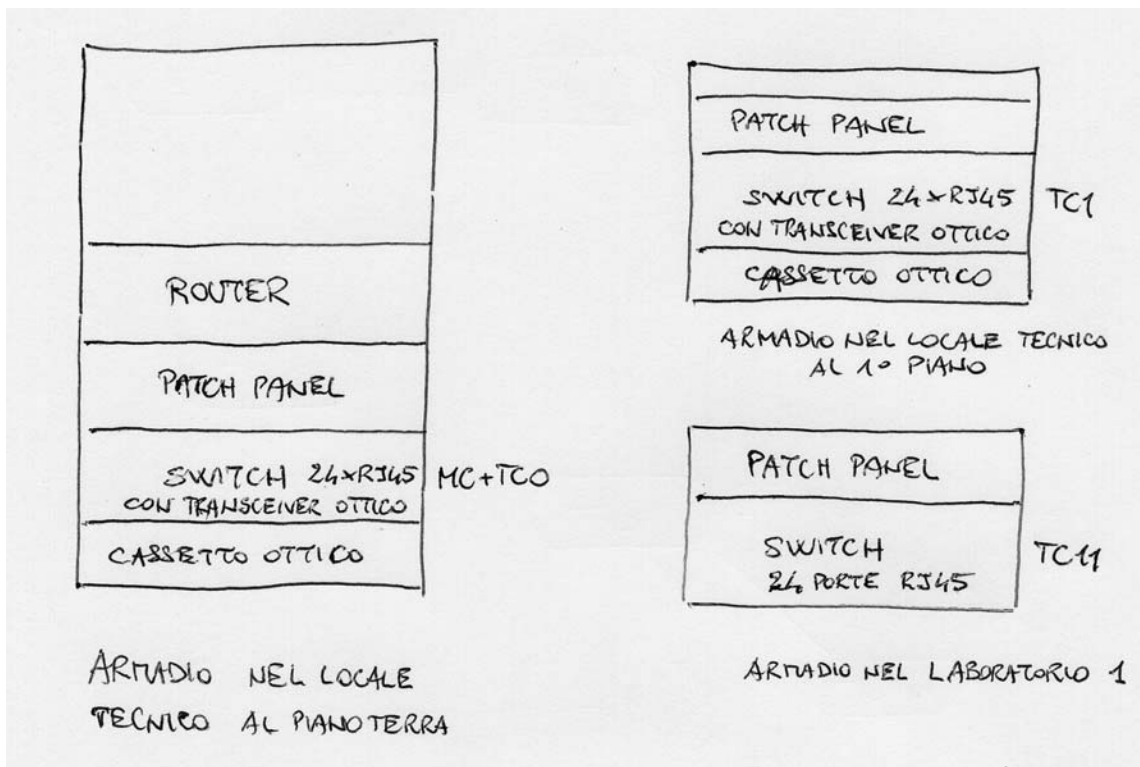 ROUTER
PATCH PANEL
SWITCH 24xRJ45 MC+TC0
CON TRANSCEIVER OTTICO
CASSETTO OTTICO
ARMADIO NEL LOCALE
TECNICO AL PIANO TERRA
PATCH PANEL
SWITCH 24xRJ45 TC1
CON TRANSCEIVER OTTICO
CASSETTO OTTICO
ARMADIO NEL LOCALE TECNICO
AL 1° PIANO
PATCH PANEL
SWITCH TC11
24 PORTE RJ45
ARMADIO NEL LABORATORIO 1